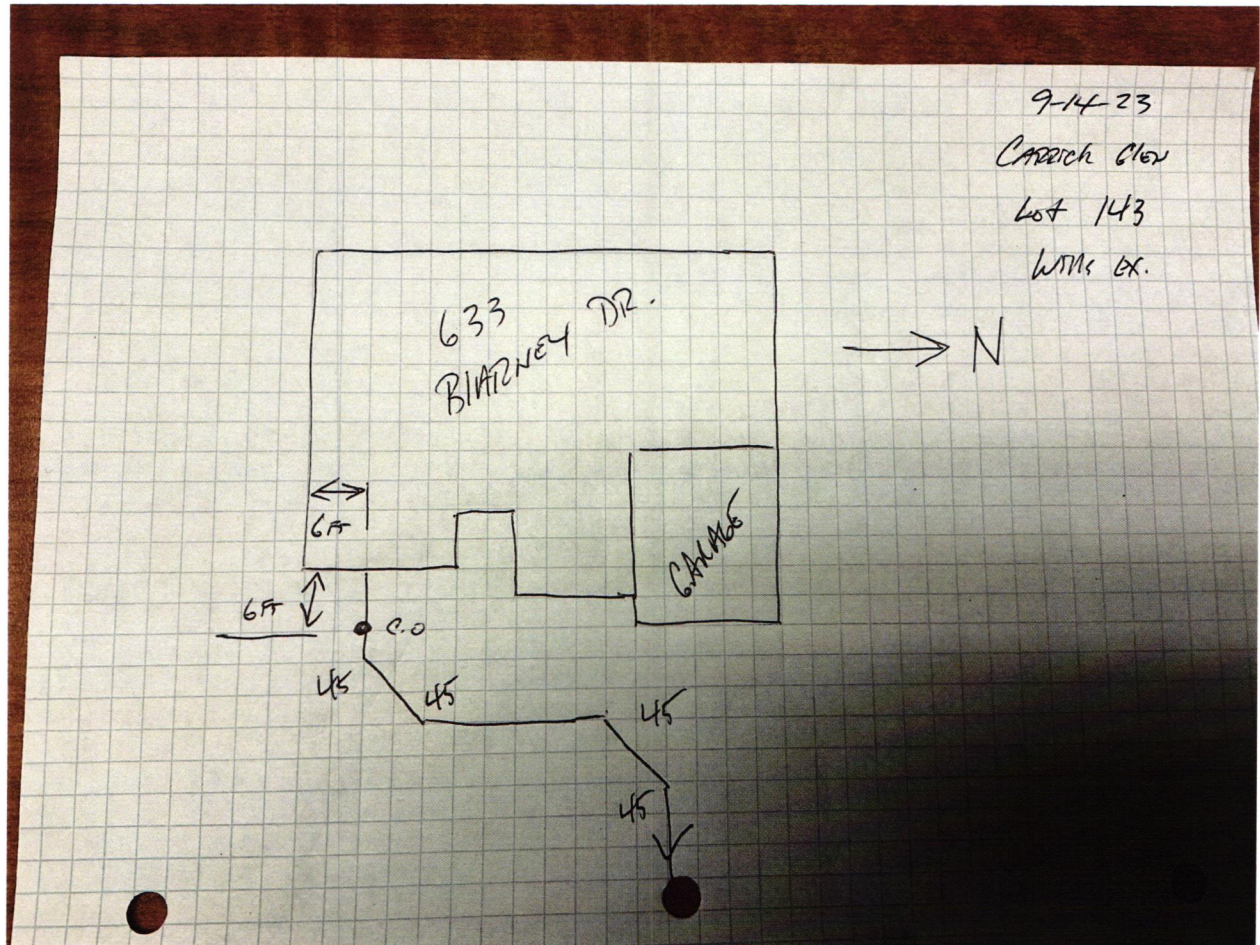 9-14-23
CARRICK GLEN
Lot 143
Wills EX.
633
BlARNEY DR.
N
6 FT
GARAGE
6 FT
C.O
45
45
45
45